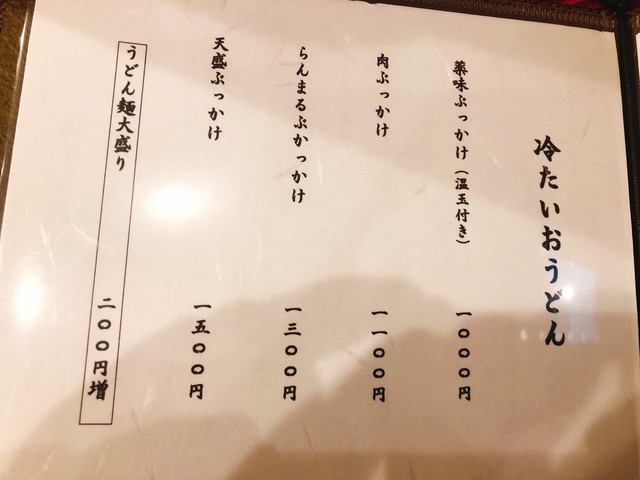 冷たいおうどん
薬味ぶっかけ（温玉付き） 一〇〇〇円
肉ぶっかけ 一一〇〇円
らんまるぶかっかけ 一三〇〇円
天盛ぶっかけ 一五〇〇円
うどん麺大盛り 二〇〇円増